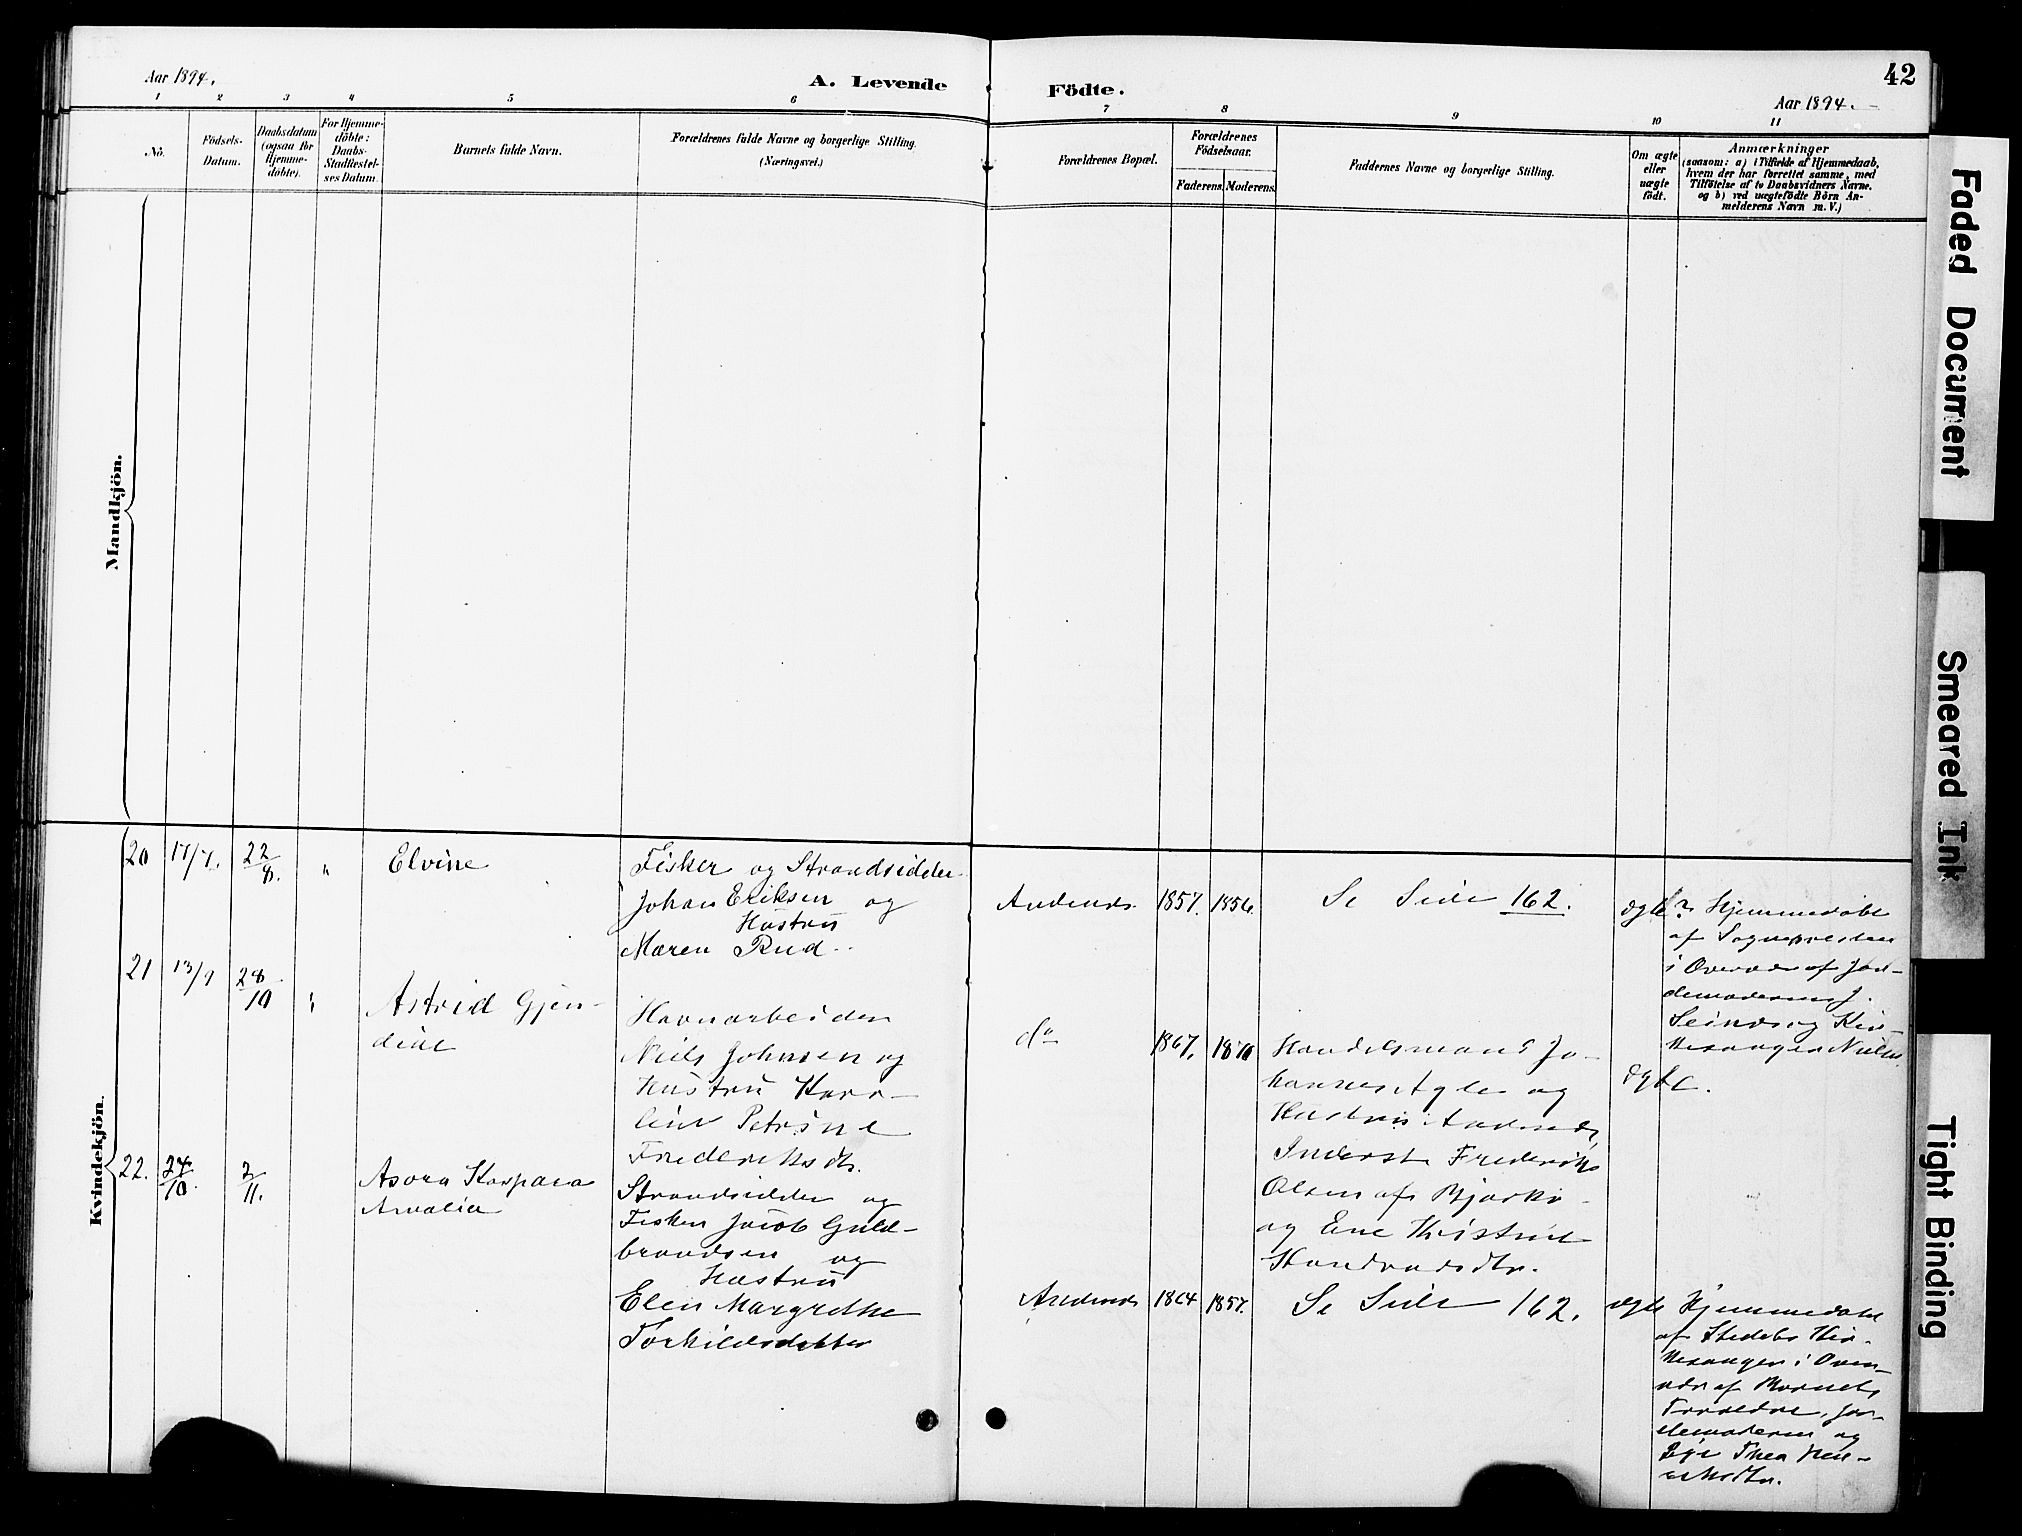 Aar 1894.
A. Levende
Födte.
42
Aar 1894.
1 2 3 4 5 6 7 8 9 10 11
No.
Födsels-
Datum.
Daabsdatum
(ogsaa for
Hjemme-
döbte).
For Hjemme-
döbte:
Daabs-
Stadfæstel-
ses Datum.
Barnets fulde Navn.
Forældrenes fulde Navne og borgerlige Stilling.
(Næringsvei.)
Forældrenes Bopæl.
Forældrenes
Födselsaar.
Faderens. Moderens.
Faddernes Navne og borgerlige Stilling.
Om ægte
eller
uægte
födt.
Anmærkninger
(saasom: a) i Tilfælde af Hjemmedaab,
hvem der har forrettet samme, med
Tilföielse af to Daabsvidners Navne.
og b) ved uægtefödte Börn An-
melderens Navn m. V.)
Mandkjön.
Kvindekjön.
20
17/7.
22/8.
"
Elvine
Fisker og Strandsidder
Johan Eriksen og
Hustru
Maren Rud.
Andenes
1857.
1856.
Se Side 162.
ægte
Hjemmedöbt
af Sognepresten
i Overvær af Jor-
demoderen J.
og Kir-
kesanger
21
13/9
28/10
"
Astrid Gjen-
dine
Havnarbeider
Niels Johnsen og
Hustru Karo-
line Petrine
Frederiksdtr.
do
1867.
1870
Handelsmand Jo-
hannes og
Hustru Andenes,
Inderst Frederik
Olsen af Bjarkö
og Ene Kristine
dtr.
ægte.
22.
24/10.
2/11.
Asora Kaspara
Amalia
Strandsidder og
Fisker Jacob Guld-
brandsen og
Hustru
Elen Margrethe
Torkildsdatter
Andenes
1864
1857.
Se Side 162.
ægte
Hjemmedöbt
af Stedets Kir-
kesanger i Over-
vær af Barnets
Forældre, Jor-
demoderen og
Thea
Faded Document
Smeared Ink
Tight Binding